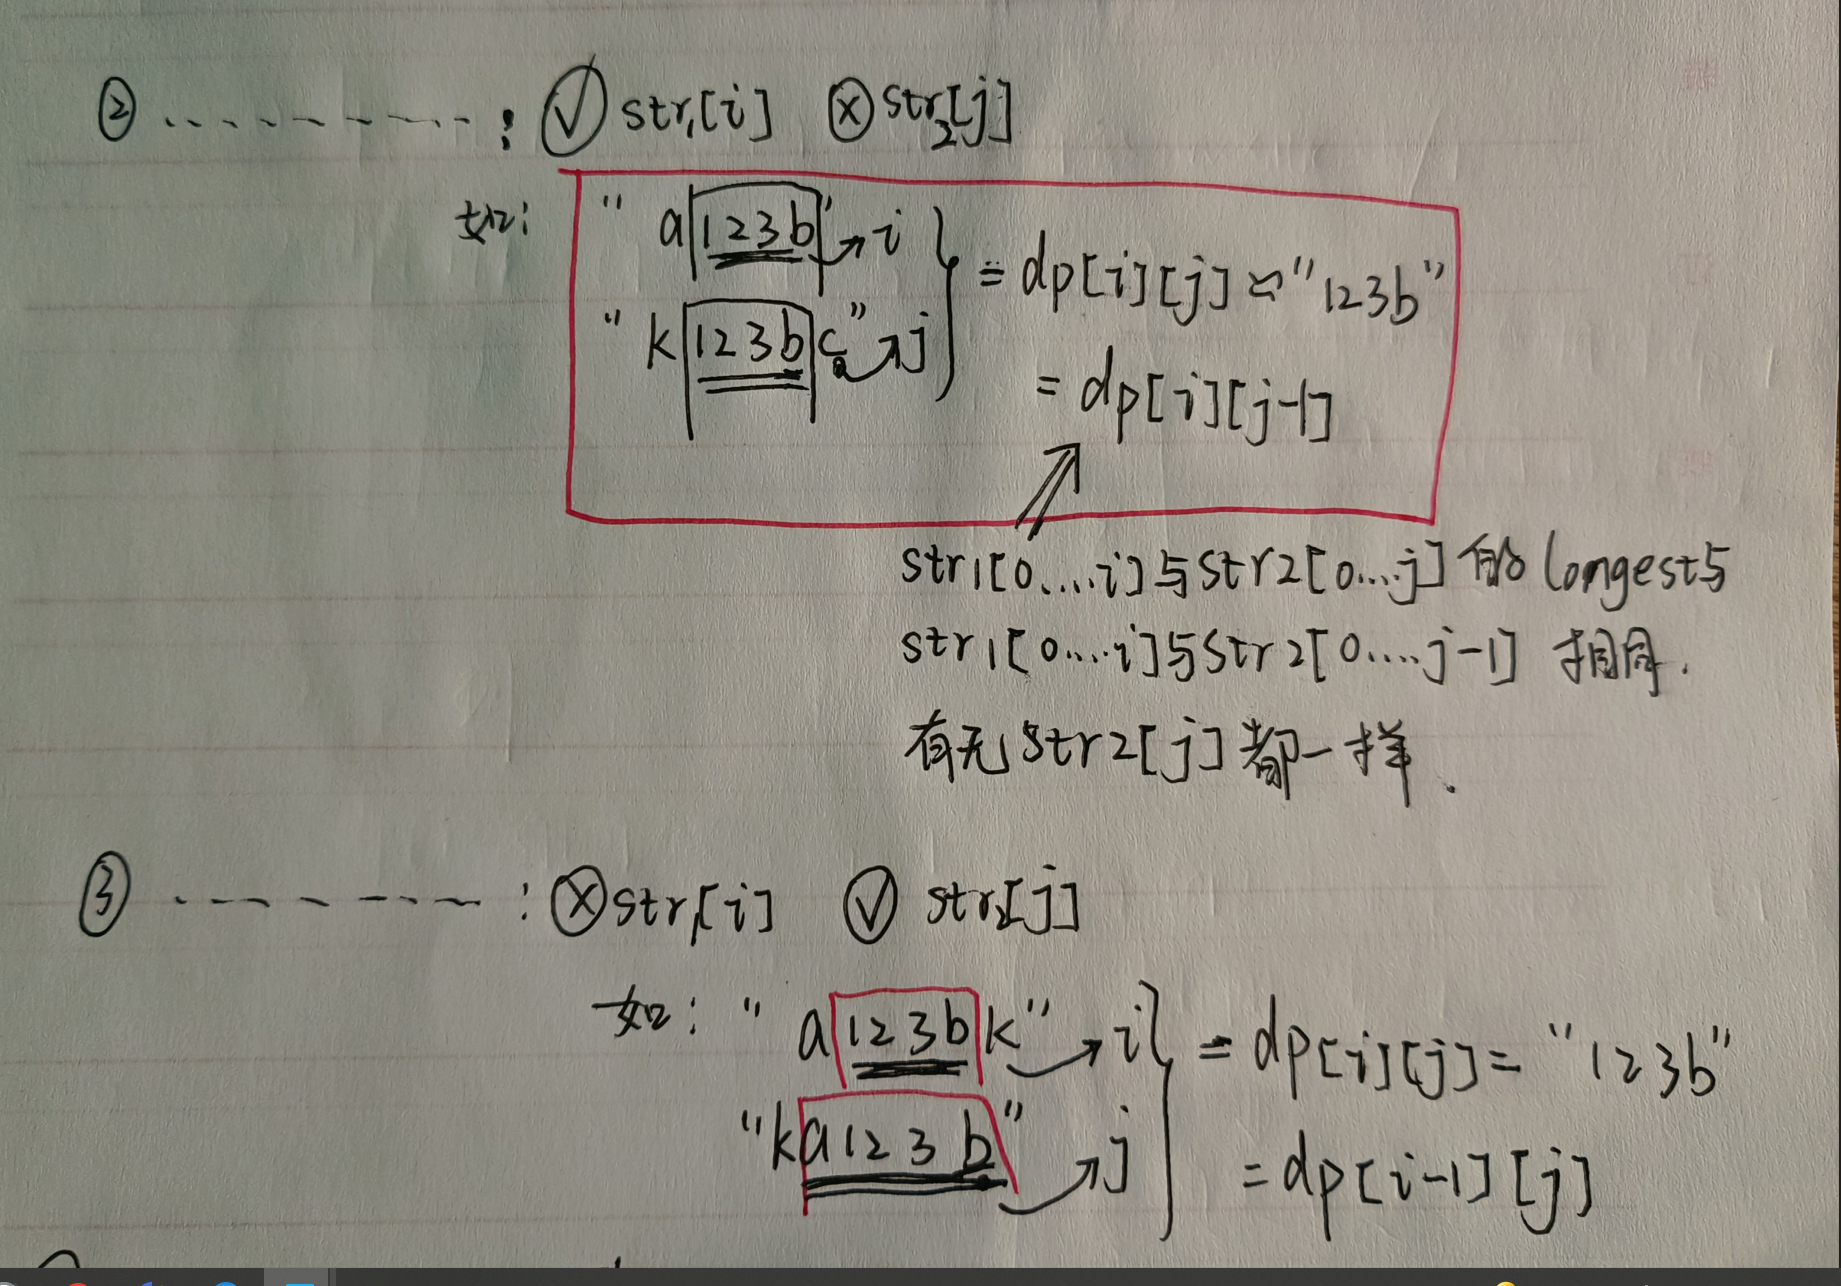 ② ---------- : ✓ str1[i] ⓧ str2[j]
如: "a123b" → i
= dp[i][j] = "123b"
"k123bc" → j
= dp[i][j-1]
str1[0....i]与str2[0...j]的longest与
str1[0....i]与str2[0....j-1] 相同.
有无str2[j]都一样.
③ ---------- : ⓧ str1[i] ✓ str2[j]
如: "a123bk" → i
= dp[i][j] = "123b"
"ka123b" → j
= dp[i-1][j]